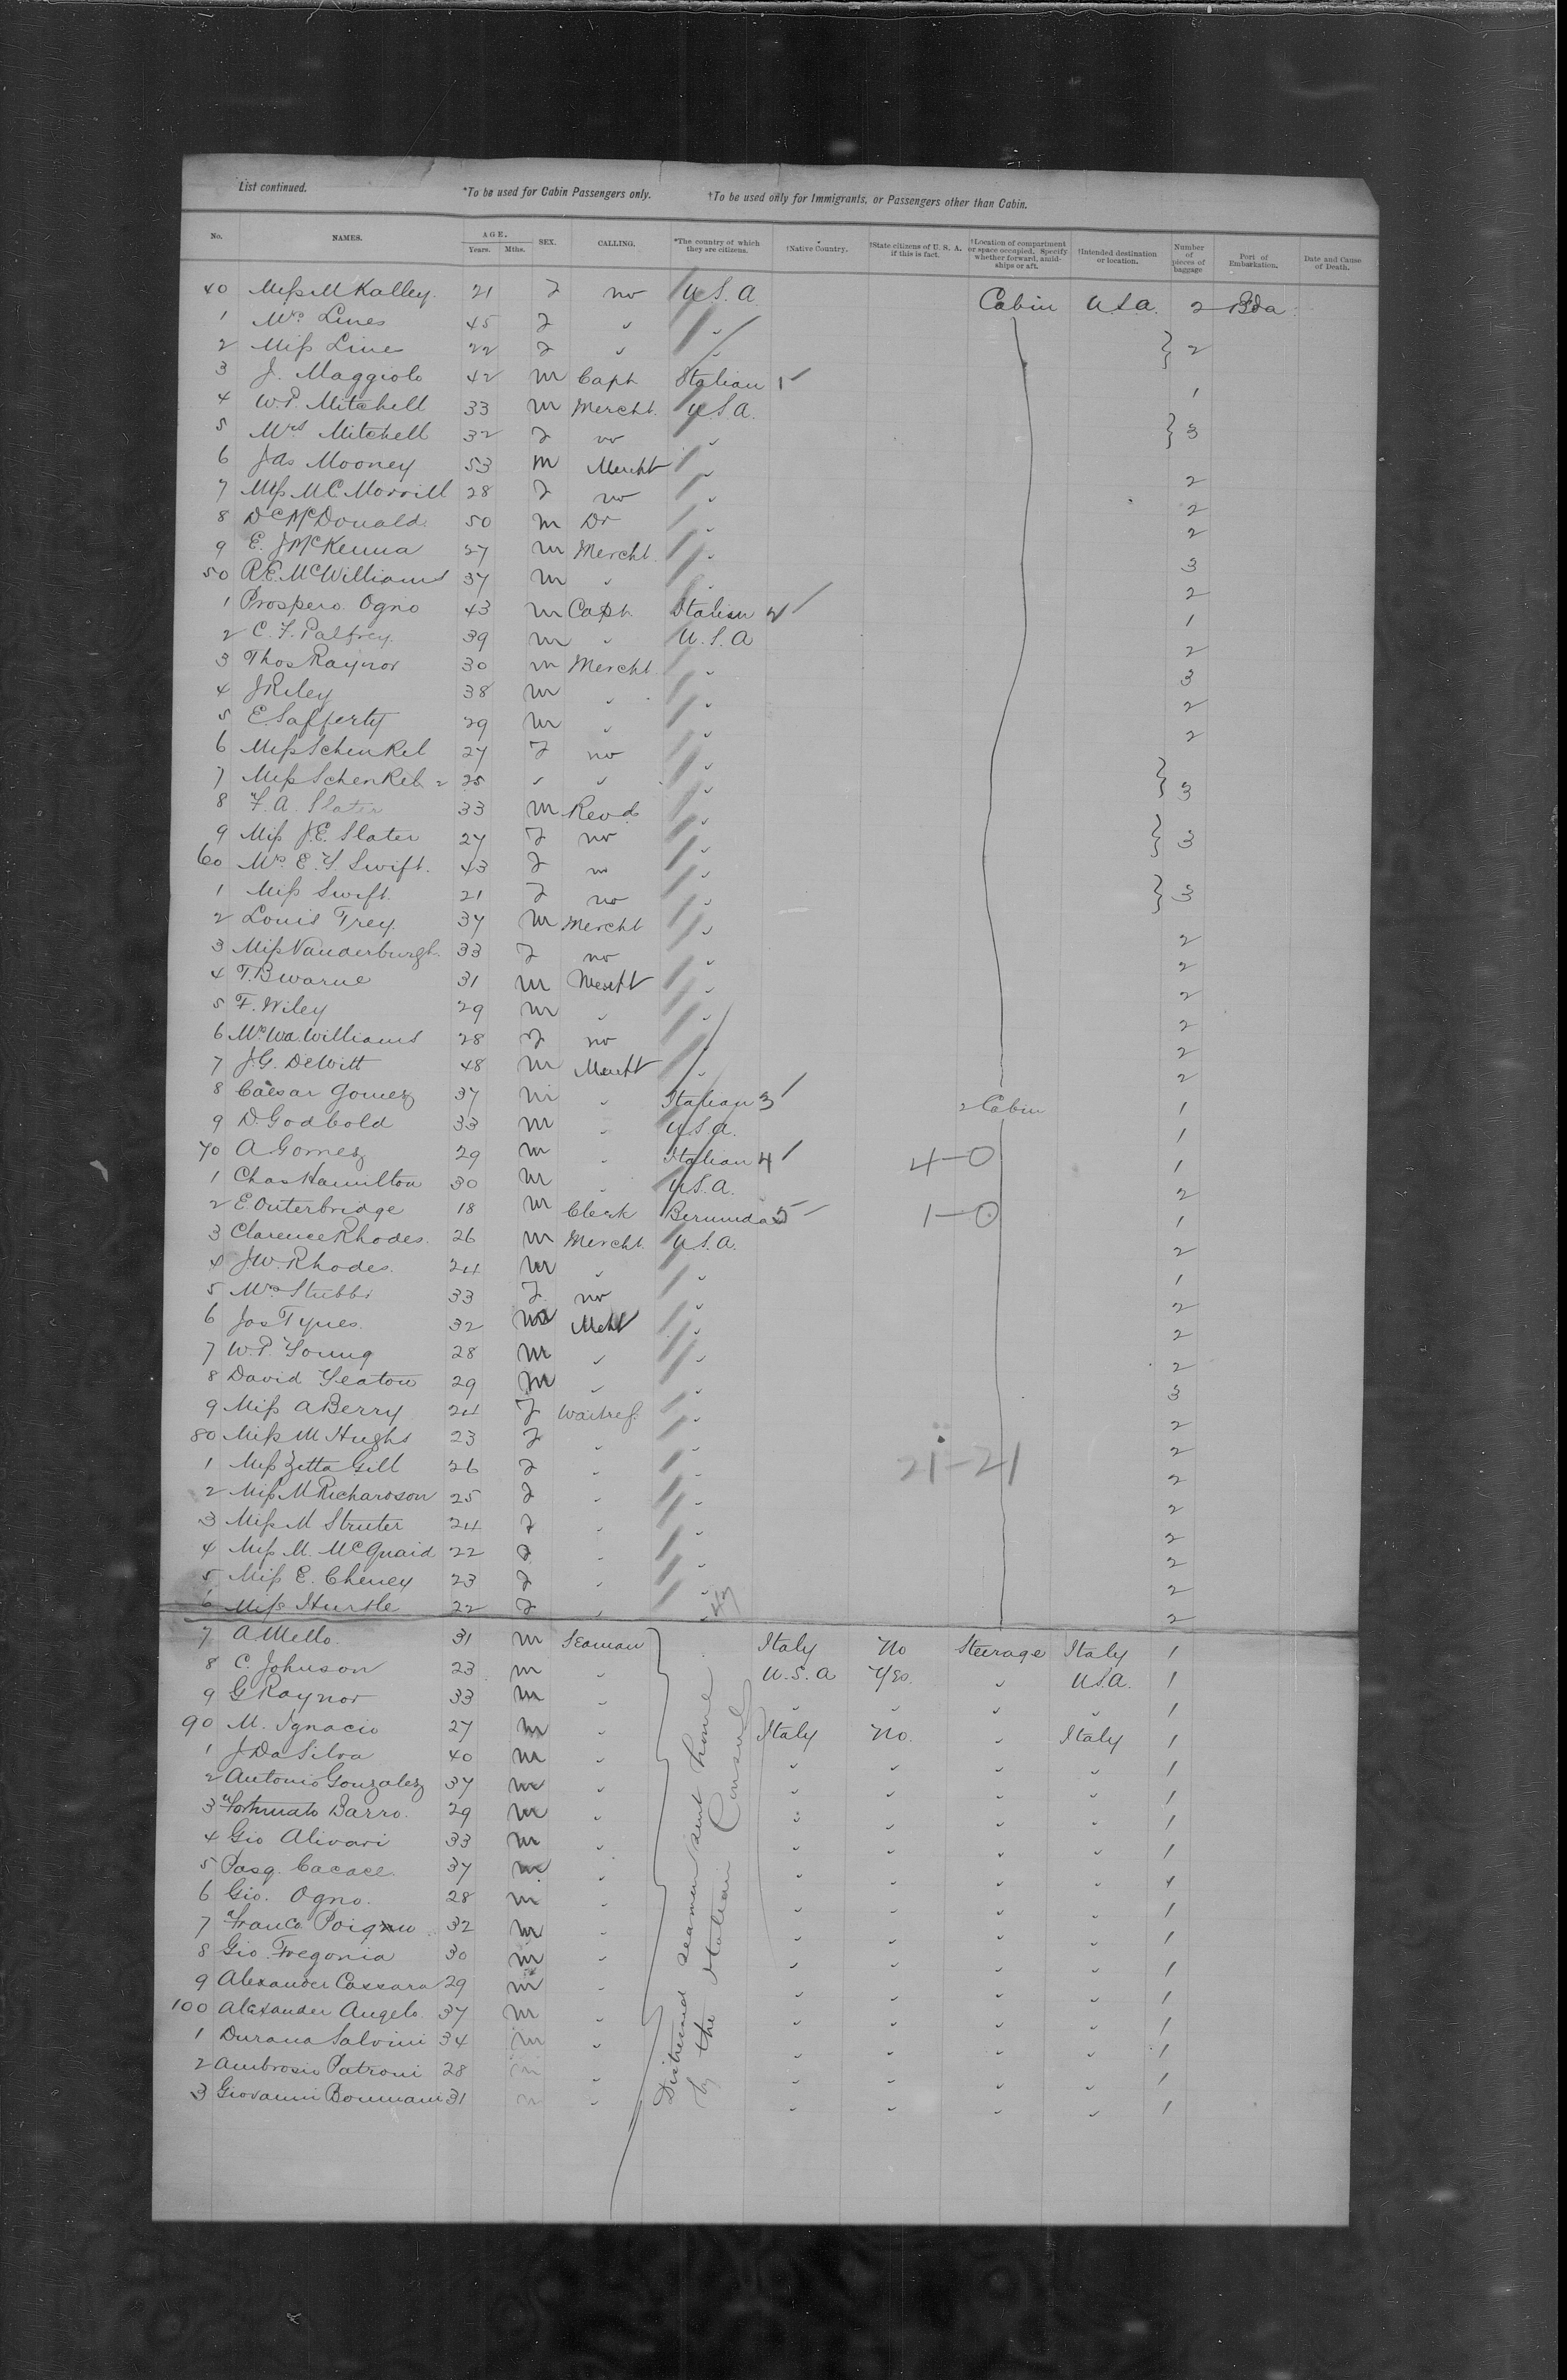 List continued. *To be used for Cabin Passengers only. †To be used only for Immigrants, or Passengers other than Cabin.
No. NAMES. AGE. Years. Mths. SEX. CALLING. *The country of which they are citizens. †Native Country. †State citizens of U. S. A. if this is fact. †Location of compartment or space occupied. Specify whether forward, amidships or aft. †Intended destination or location. Number of pieces of baggage Port of Embarkation. Date and Cause of Death.
40 Miss M Kalley. 21 F no U.S.A. Cabin U.S.A. 2 Bda
1 Mrs Lines 45 F " "
2 Miss Line 22 F " " } 2
3 J. Maggiolo 42 m Capt. Italian 1 1
4 W.P. Mitchell 33 m Mercht. U.S.A.
5 Mrs Mitchell 32 F no " } 3
6 Jas Mooney 53 m Mercht " 2
7 Miss M C Morrill 28 F no " 2
8 Dr McDonald. 50 m Dr " 2
9 E. J McKenna 27 m Mercht. " 3
50 R.E. McWilliams 37 m " " 2
1 Prospero Ogno 43 m Capt. Italian 2 1
2 C. F. Palfrey. 39 m " U.S.A 2
3 Thos Raynor 30 m Mercht. " 3
4 J Riley 38 m " " 2
5 E Safferty 29 m " " 2
6 Miss Schenkel 27 F no "
7 Miss Schenkel 2 25 " " " } 3
8 F. A. Slater 33 m Revd. "
9 Miss J.E. Slater 27 F no " } 3
60 Mrs E. Y. Swift. 43 F no "
1 Miss Swift. 21 F no " } 3
2 Louis Frey. 37 m Mercht " 2
3 Miss Vanderburgh. 33 F no " 2
4 T. B warne 31 m Mercht " 2
5 F. Wiley 29 m " " 2
6 Mrs Wa. Williams 28 F no " 2
7 J.G. DeWitt 48 m Mercht " 2
8 Caesar Gomez 37 m " Italian 3 2 Cabin 1
9 D. Godbold 33 m " U.S.A. 1
70 A Gomez 29 m " Italian 4 4-0 1
1 Chas Hamilton 30 m " U.S.A. 2
2 E. Outerbridge 18 m Clerk Bermuda 5 1-0 1
3 Clarence Rhodes. 26 m Mercht. U.S.A. 2
4 J.W. Rhodes. 24 m " " 1
5 Mrs Stubbs 33 F no " 2
6 Jos Tynes. 32 m Mcht " 2
7 W.P. Young 28 m " " 2
8 David Yeaton 29 m " " 3
9 Miss A Berry 24 F Waitress. " 2
80 Miss M Hughs 23 F " " 2
1 Miss Zetta Gill 26 F " " 21-21 2
2 Miss M Richardson 25 F " " 2
3 Miss M Struter 24 F " " 2
4 Miss M. McQuaid 22 F " " 2
5 Miss E. Cheney 23 F " " 2
6 Miss Hurtle 22 F " " 2
7 A Mello. 31 m Seaman Italy No Steerage Italy 1
8 C. Johnson 23 m " U.S.A Yes. " U.S.A. 1
9 G Raynor 33 m " " " " " 1
90 M. Ignacio 27 m " Italy No. " Italy 1
1 J Da Silva 40 m " " " " " 1
2 Antonio Gonzalez 37 m " " " " " 1
3 Fortunato Barro. 29 m " " " " " 1
4 Gio Alivari 33 m " " " " " 1
5 Pasq. Cacace. 37 m " " " " "
6 Gio. Ogno. 28 m " " " " " 1
7 Franco 32 m " " " " " 1
8 Gio. Fregonia 30 m " " " " " 1
9 Alexander Cassara 29 m " " " " " 1
100 Alexander Angelo. 37 m " " " " " 1
1 Durana Salvini 34 m " " " " " 1
2 Ambrosio Patroni 28 m " " " " " 1
3 Giovanni 31 m " " " " " 1
Distressed seamen sent home
by the Italian Consul